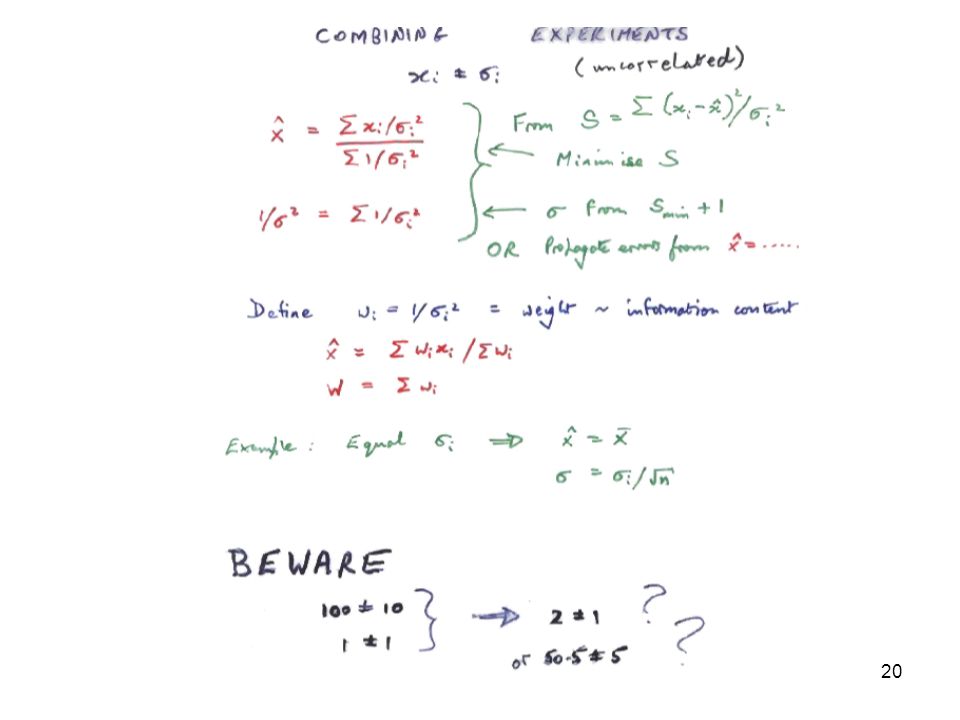 COMBINING EXPERIMENTS
xᵢ ± σᵢ (uncorrelated)
x̂ = Σ xᵢ/σᵢ² / Σ 1/σᵢ²
From S = Σ (xᵢ - x̂)²/σᵢ²
← Minimise S
1/σ² = Σ 1/σᵢ²
← σ from Smin + 1
OR Propagate errors from x̂ = .....
Define wᵢ = 1/σᵢ² = weight ~ information content
x̂ = Σ wᵢxᵢ / Σwᵢ
W = Σ wᵢ
Example : Equal σᵢ ⇒ x̂ = x̄
σ = σᵢ/√n
BEWARE
100 ± 10
1 ± 1 } → 2 ± 1 ?
or 50.5 ± 5 ?
20